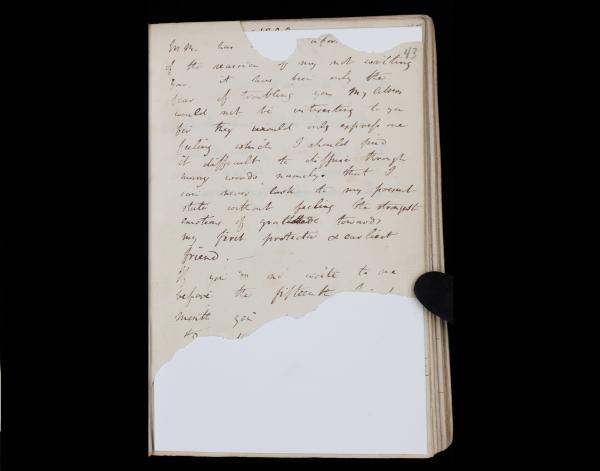 43
Mr. has
of the reason of my not writing
you. it has been only the
fear of troubling you My letters
would not be interesting to you
for they would only express one
feeling which I should find
it difficult to diffuse through
many words namely. that I
can never look to my present
state without feeling the strongest
emotions of gratitude towards
my first protector & earliest
friend. —
If you do not write to me
before the fifteenth
month you